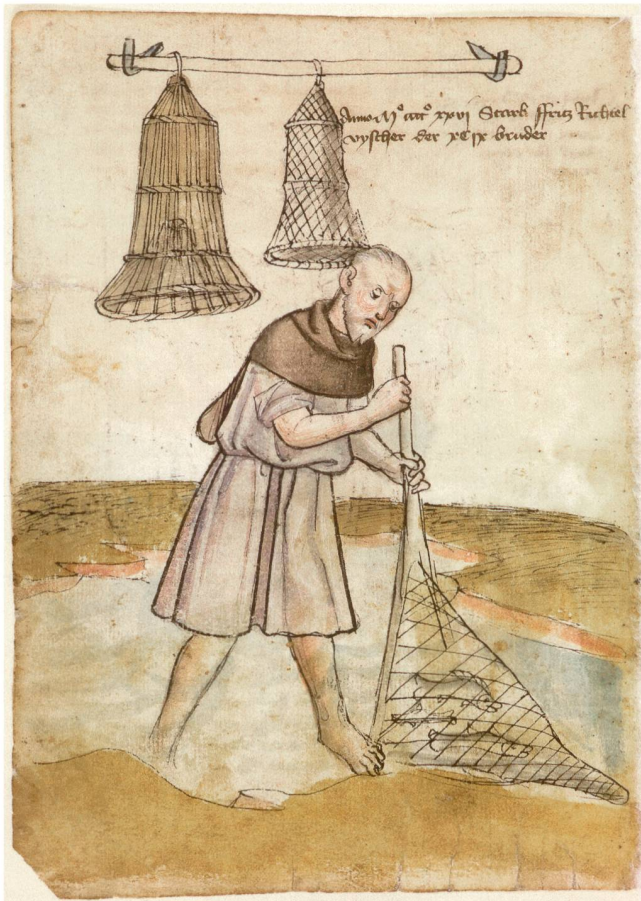 Anno M° cccc° xxvi Starb ffritz Richtel
vyscher der xCix bruder